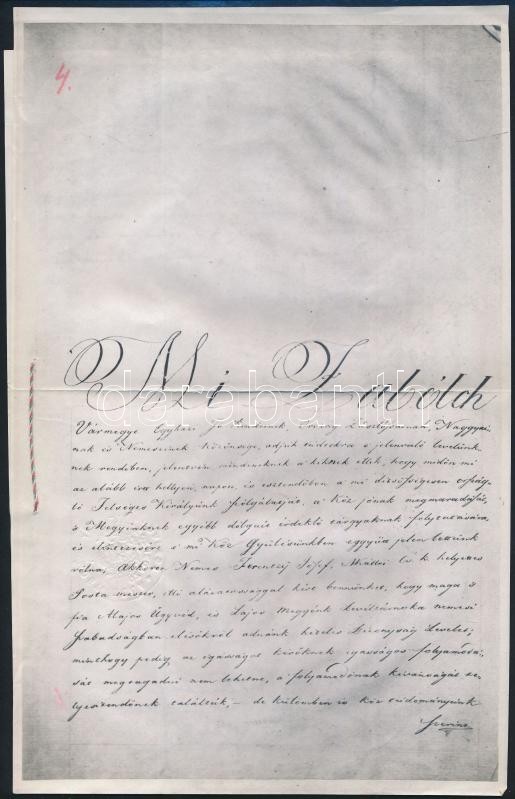 4.
Mi Zabólch
Vármegye Egyházi jó rendeinek, Ország Zászlóssainak, Nagygyai-
nak és Nemeseinek Közönsége, adjuk mindenkinek jelenvaló levelünk-
nek rendiben, jelentvén mindeneknek a kiknek illik, hogy midőn mi
az alább irtt hellyen, napon, és esztendőben a mi dicsősségesen ország-
ló Felséges Királyunk szólgálatjára, a Köz jónak megmaradására,
s Megyénknek egyébb dolgait érdeklő tárgyaknak folytatására,
és elintézésére a mi Köz Gyűlésünkben együtt jelen lettünk
vólna, Akkoron Nemes Ferenczy Jósef, helyettes
Posta mester, alázatossággal kére bennünket, hogy maga s
fia Alajos Ügyvéd, és Lajos Megyénk Levéltárnoka nemesi
szabadságban létekről adnánk hiteles Bizonyság Levelet;
minthogy pedig az igazságot kérőknek igazságos folyamodá-
sát megtagadni nem lehetne, a folyamodónak kívánságát tel-
lyesítendőnek találtuk, – de különben is Köz tudományunk
szerint
darabanth